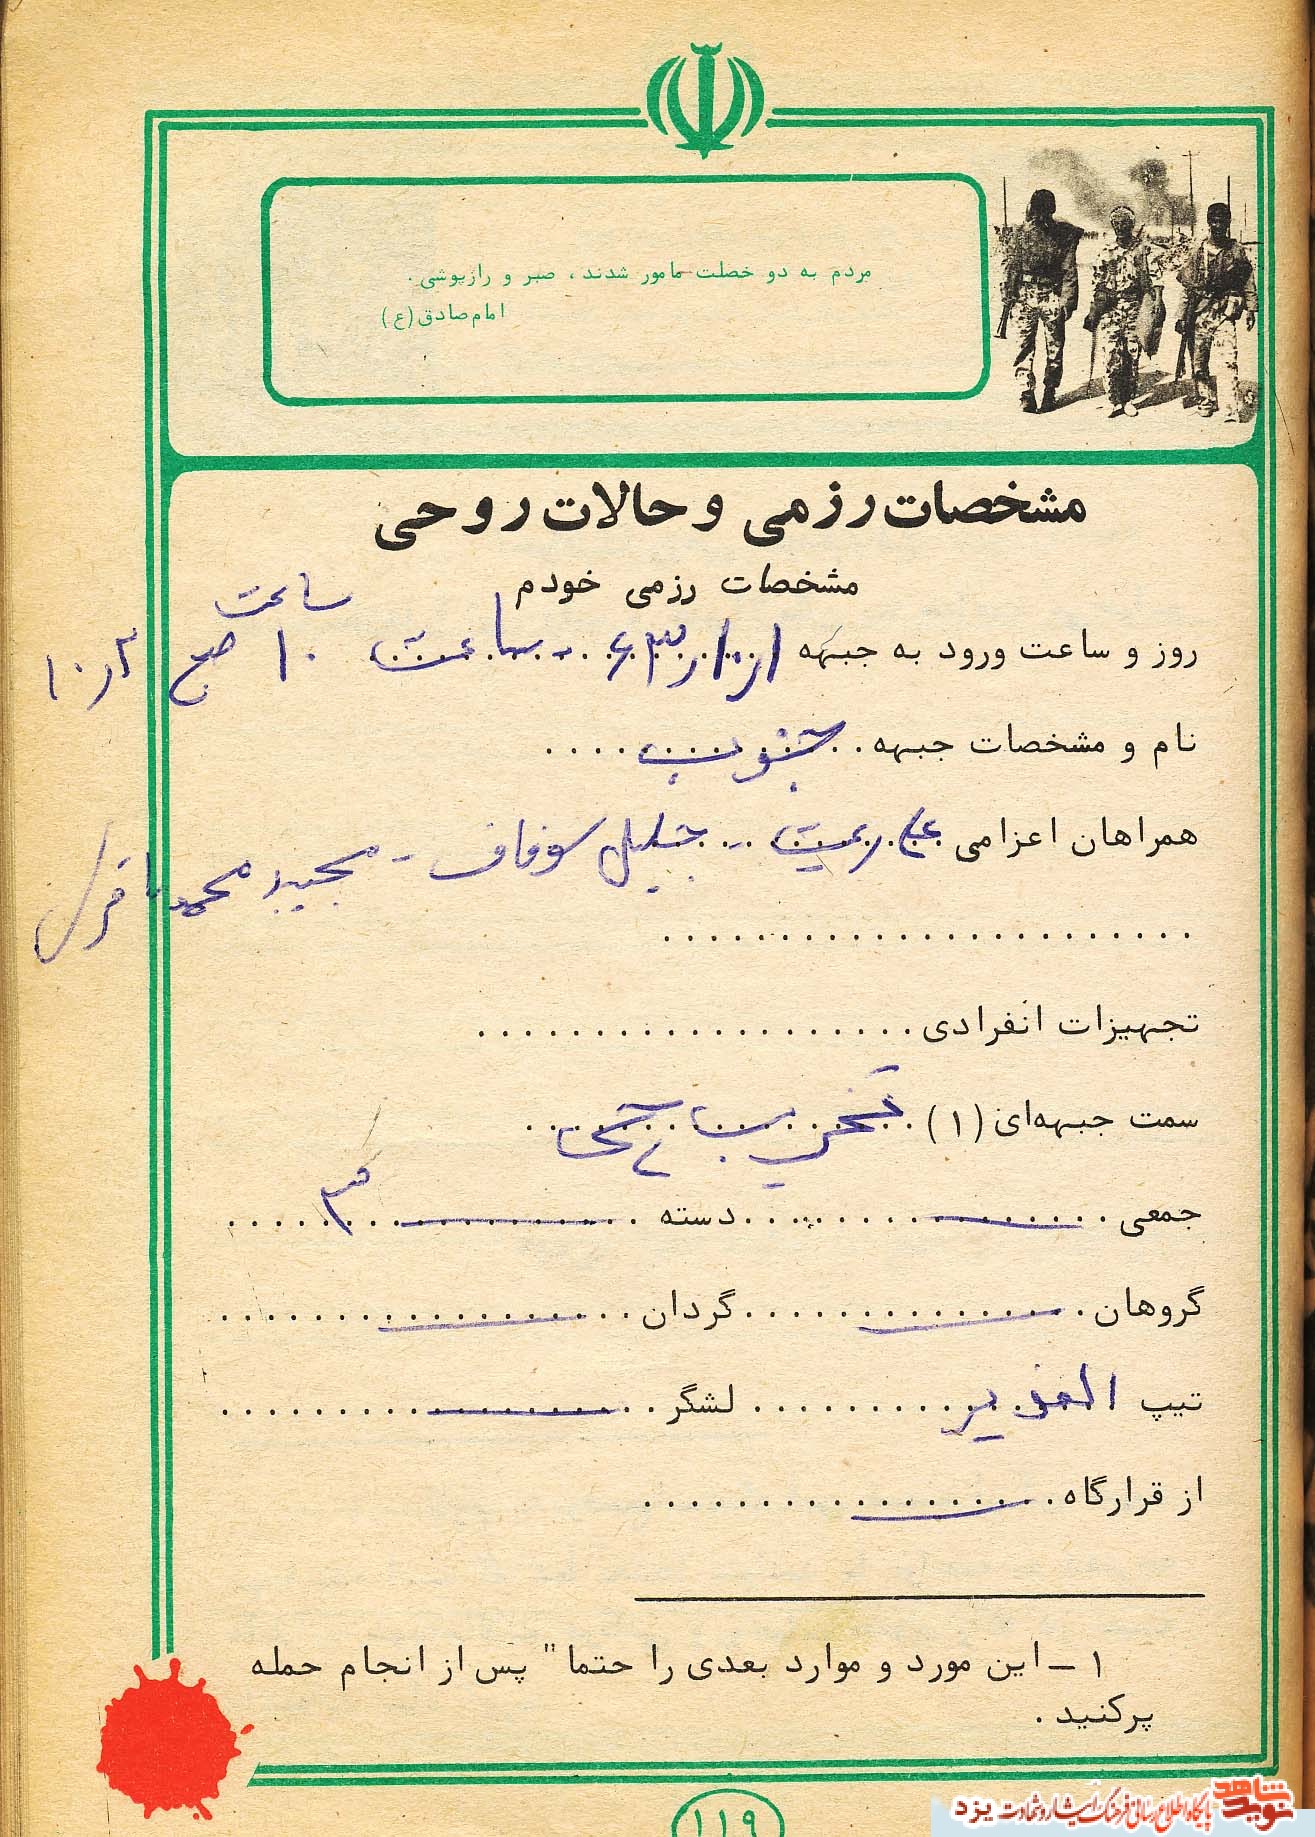 مردم به دو خصلت مامور شدند، صبر و رازپوشی.
امام صادق (ع)
مشخصات رزمی و حالات روحی
مشخصات رزمی خودم
ساعت
روز و ساعت ورود به جبهه ساعت ۱۰ صبح
نام و مشخصات جبهه جنوب
همراهان اعزامی علی رعیت - جلیل سوفاف - مجید محمد باقر
تجهیزات انفرادی
سمت جبهه‌ای (۱) تخریب‌چی
جمعی دسته ۳
گروهان گردان
تیپ الغدیر لشگر
از قرارگاه
۱ - این مورد و موارد بعدی را حتما" پس از انجام حمله
پرکنید.
۱۱۹
نوید شاهد پایگاه اطلاع رسانی فرهنگ ایثار و شهادت یزد